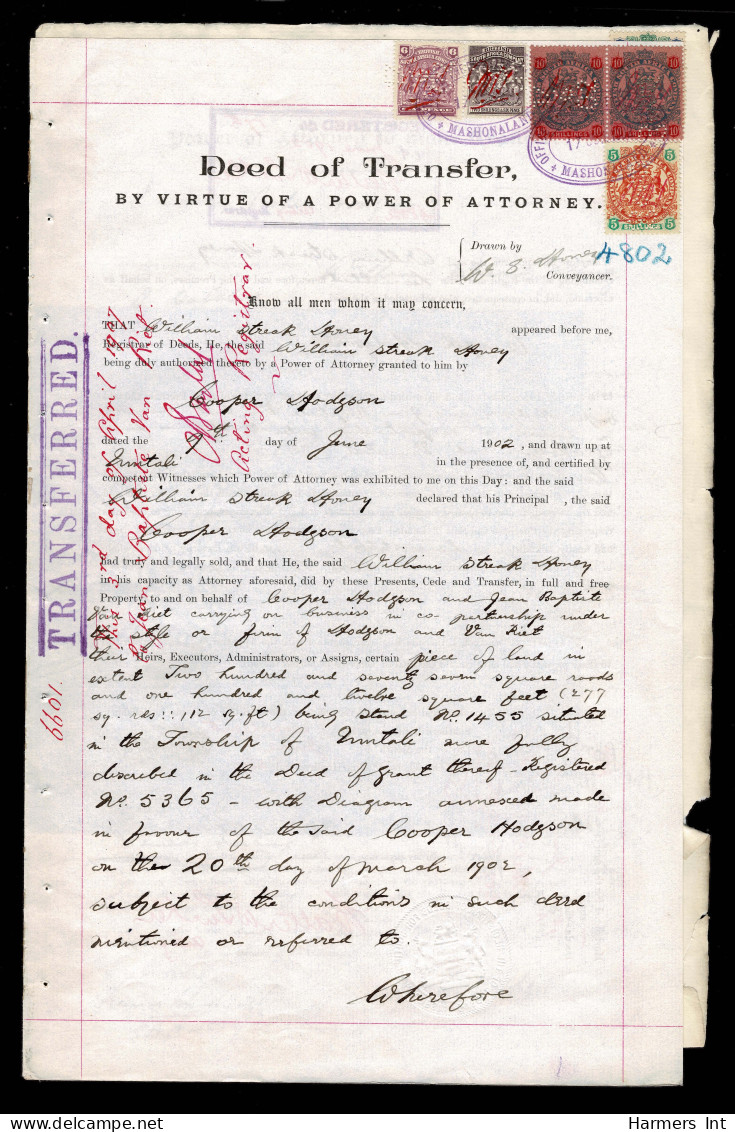 6 6
10 10 10
MASHONALAN
MASHONA
5 5
5 5
Deed of Transfer,
BY VIRTUE OF A POWER OF ATTORNEY.
Drawn by
4802
W. S. Honey
Conveyancer.
Know all men whom it may concern,
THAT William Streak Honey appeared before me,
Registrar of Deeds, He, the said William Streak Honey
being duly authorised thereto by a Power of Attorney granted to him by
Cooper Hodgson
dated the 9th day of June 1902, and drawn up at
Umtali in the presence of, and certified by
competent Witnesses which Power of Attorney was exhibited to me on this Day: and the said
William Streak Honey declared that his Principal , the said
Cooper Hodgson
had truly and legally sold, and that He, the said William Streak Honey
in his capacity as Attorney aforesaid, did by these Presents, Cede and Transfer, in full and free
Property to and on behalf of Cooper Hodgson and Jean Baptiste
Van Riet carrying on business in co partnership under
the style or firm of Hodgson and Van Riet
their Heirs, Executors, Administrators, or Assigns, certain piece of land in
extent Two hundred and seventy seven square roods
and one hundred and twelve square feet (277
sq. rds :: 112 sq. ft) being Stand No. 1455 situated
in the Township of Umtali more fully
described in the Deed of Grant thereof - Registered
No. 5365 - with Diagram annexed made
in favour of the said Cooper Hodgson
on the 20th day of March 1902,
subject to the conditions in such deed
mentioned or referred to.
Wherefore
TRANSFERRED.
this 3rd day of April 1907
to Jean Baptiste Van Riet.
Acting Registrar
1099
Harmers Int